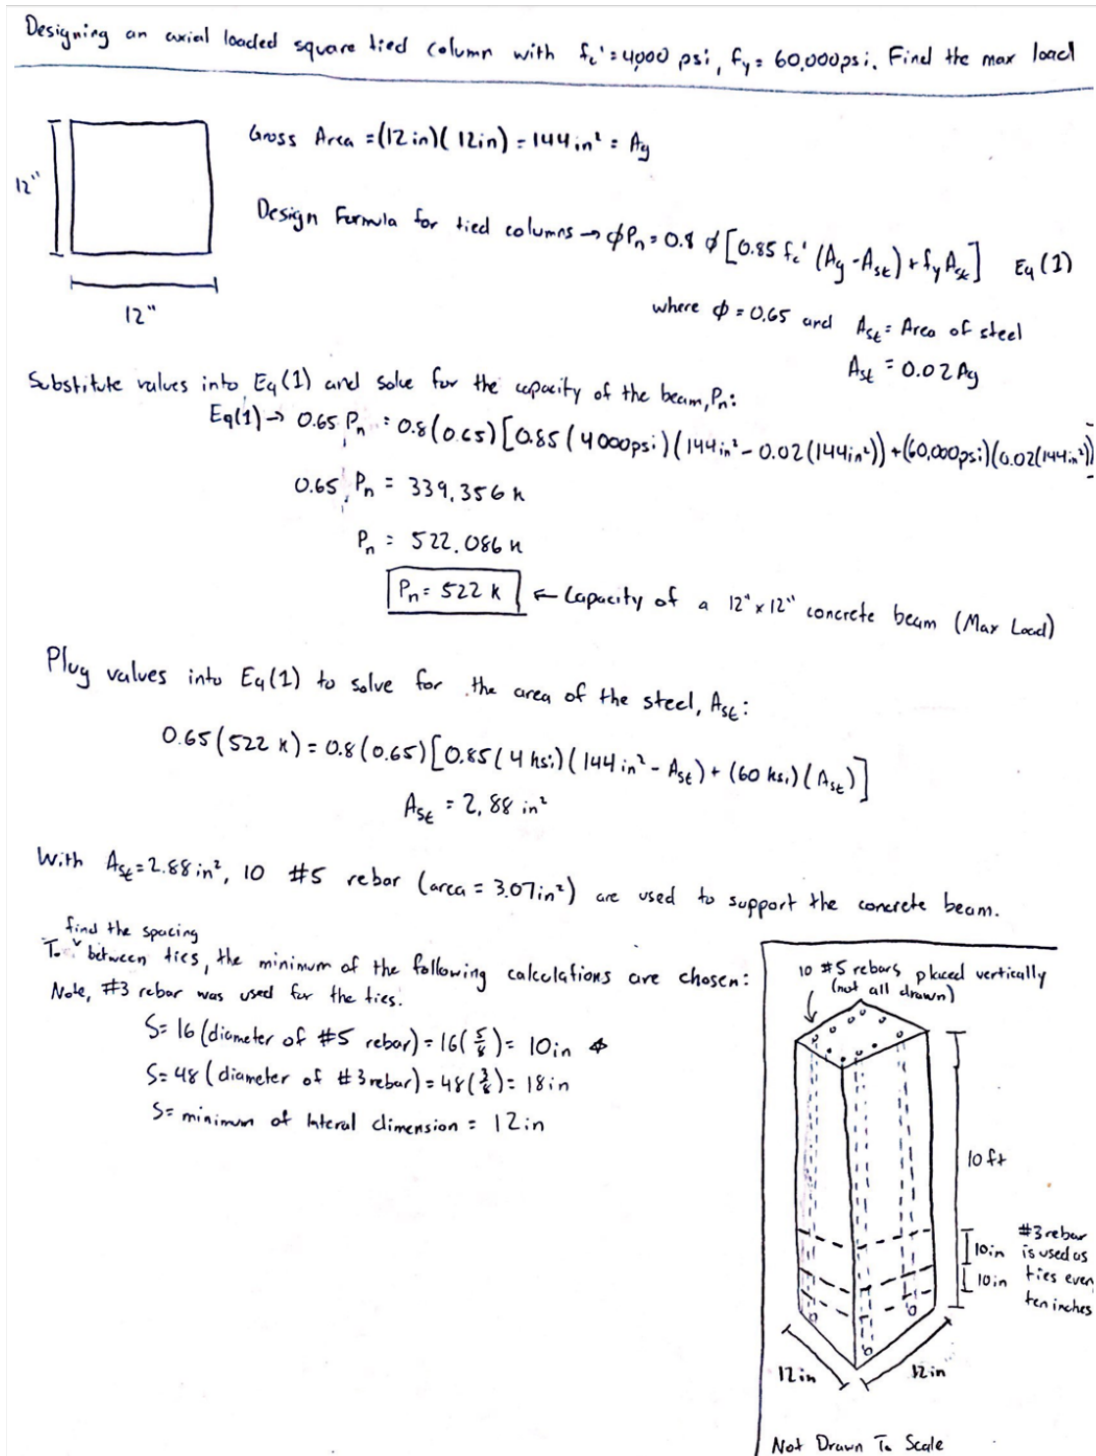 Designing an axial loaded square tied column with fc' = 4,000 psi, fy = 60,000 psi. Find the max load
12"
12"
Gross Area = (12 in)(12 in) = 144 in² = Ag
Design Formula for tied columns → ϕPn = 0.8 ϕ [0.85 fc' (Ag - Ast) + fy Ast] Eq (1)
where ϕ = 0.65 and Ast = Area of steel
Ast = 0.02 Ag
Substitute values into Eq (1) and solve for the capacity of the beam, Pn:
Eq(1) → 0.65 Pn = 0.8 (0.65) [0.85 (4000psi) (144in² - 0.02 (144in²)) + (60,000psi) (0.02(144in²))
0.65 Pn = 339.356 k
Pn = 522.086 k
Pn = 522 k ← Capacity of a 12" x 12" concrete beam (Max Load)
Plug values into Eq (1) to solve for the area of the steel, Ast:
0.65 (522 k) = 0.8 (0.65) [0.85 (4 ksi) (144 in² - Ast) + (60 ksi) (Ast)]
Ast = 2.88 in²
With Ast = 2.88in², 10 #5 rebar (area = 3.07in²) are used to support the concrete beam.
find the spacing
To between ties, the minimum of the following calculations are chosen:
Note, #3 rebar was used for the ties.
S = 16 (diameter of #5 rebar) = 16 (5/8) = 10 in
S = 48 (diameter of #3 rebar) = 48 (3/8) = 18 in
S = minimum of lateral dimension = 12 in
10 #5 rebars placed vertically
(not all drawn)
10 ft
10in
10in
#3 rebar
is used as
ties every
ten inches
12in
12in
Not Drawn To Scale